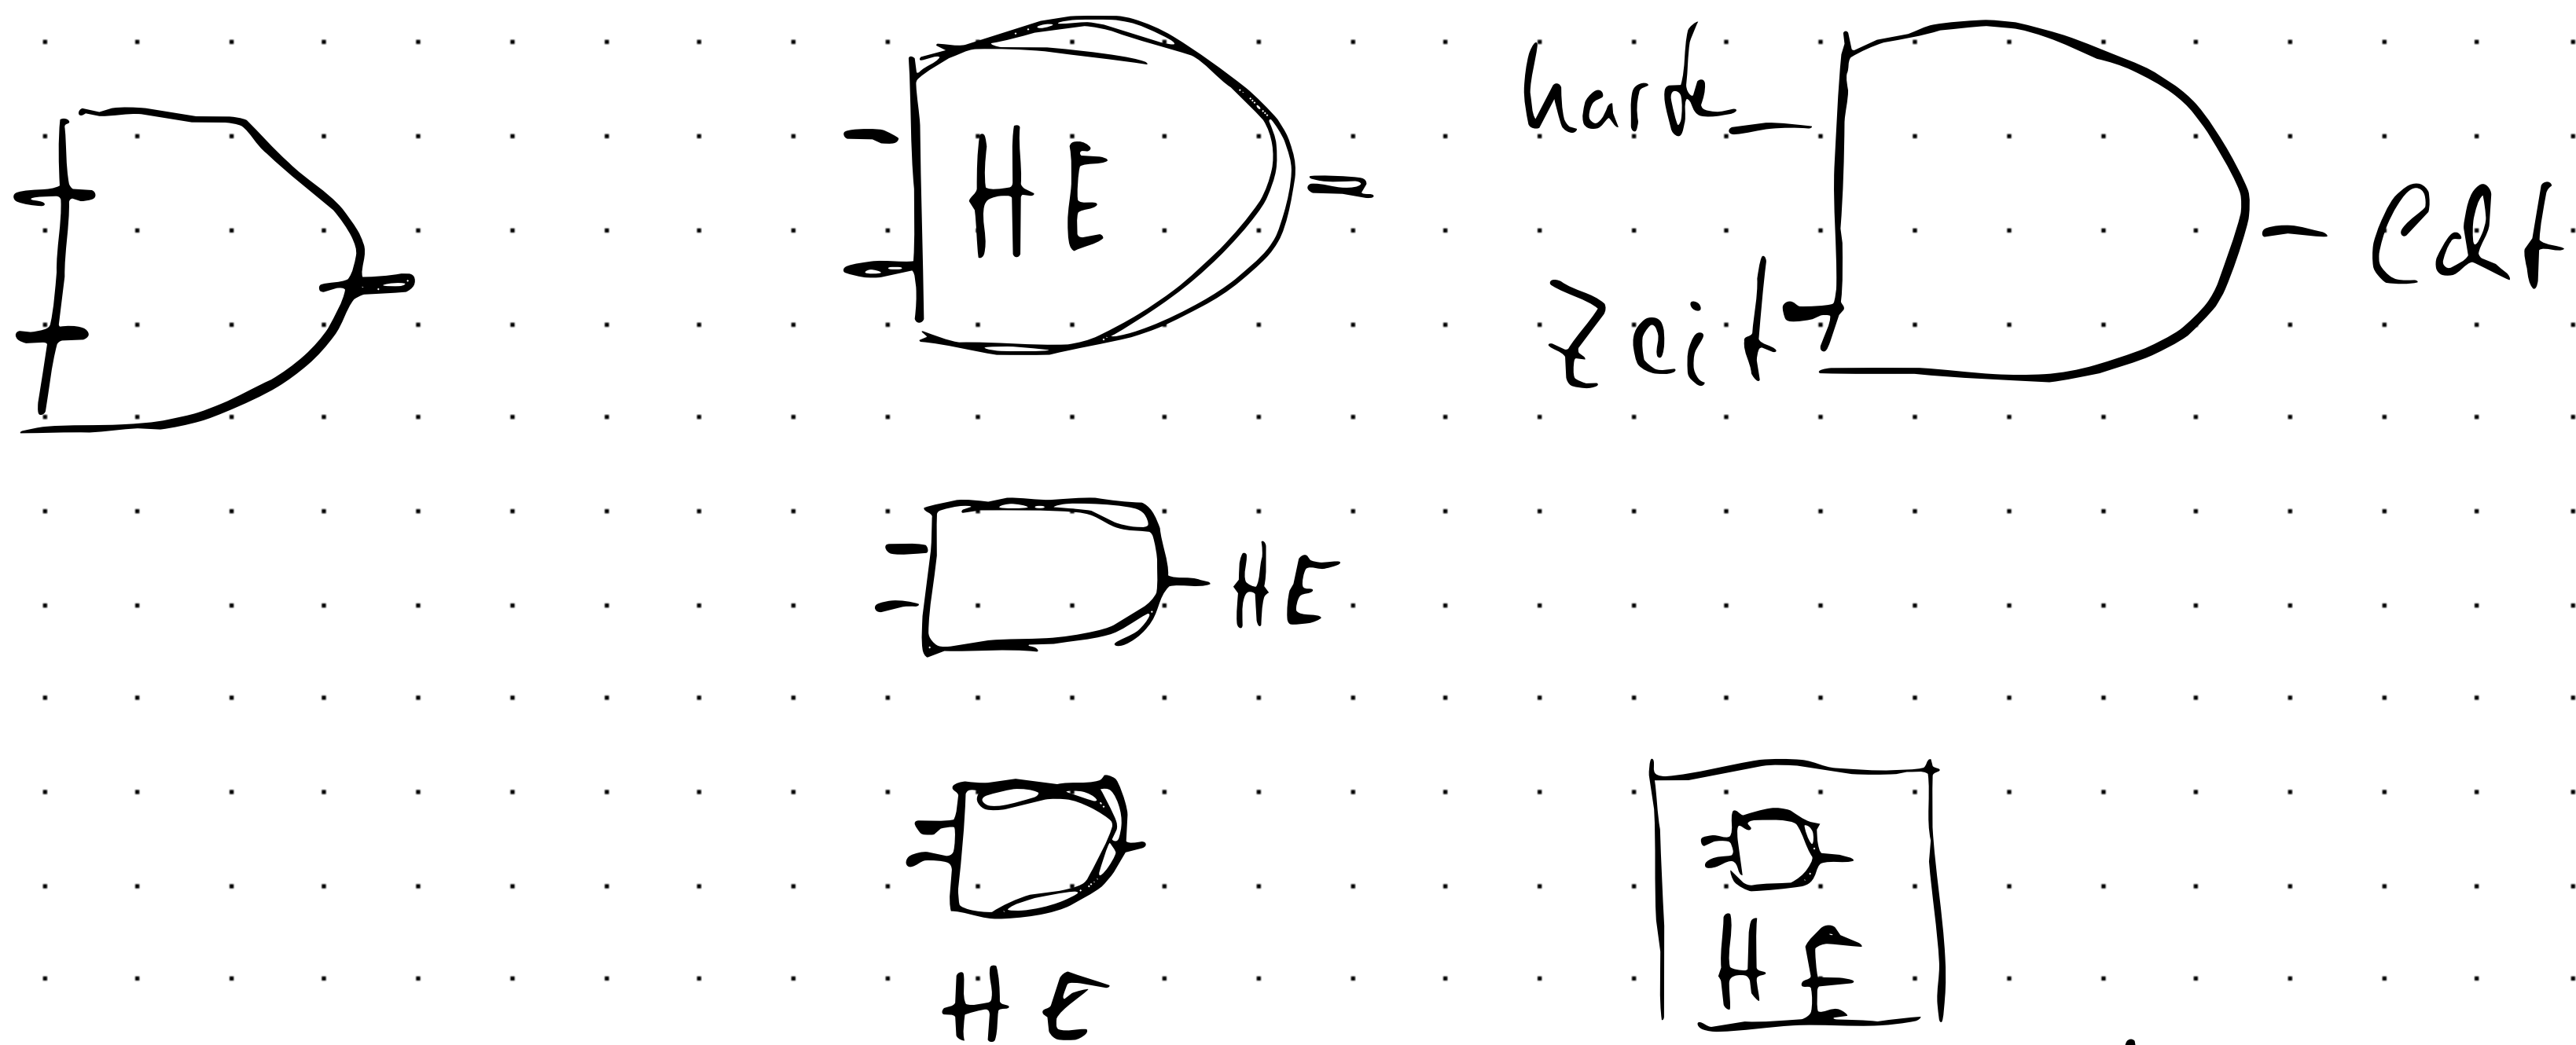 HE
hard
Zeit
Edt
HE
HE
HE